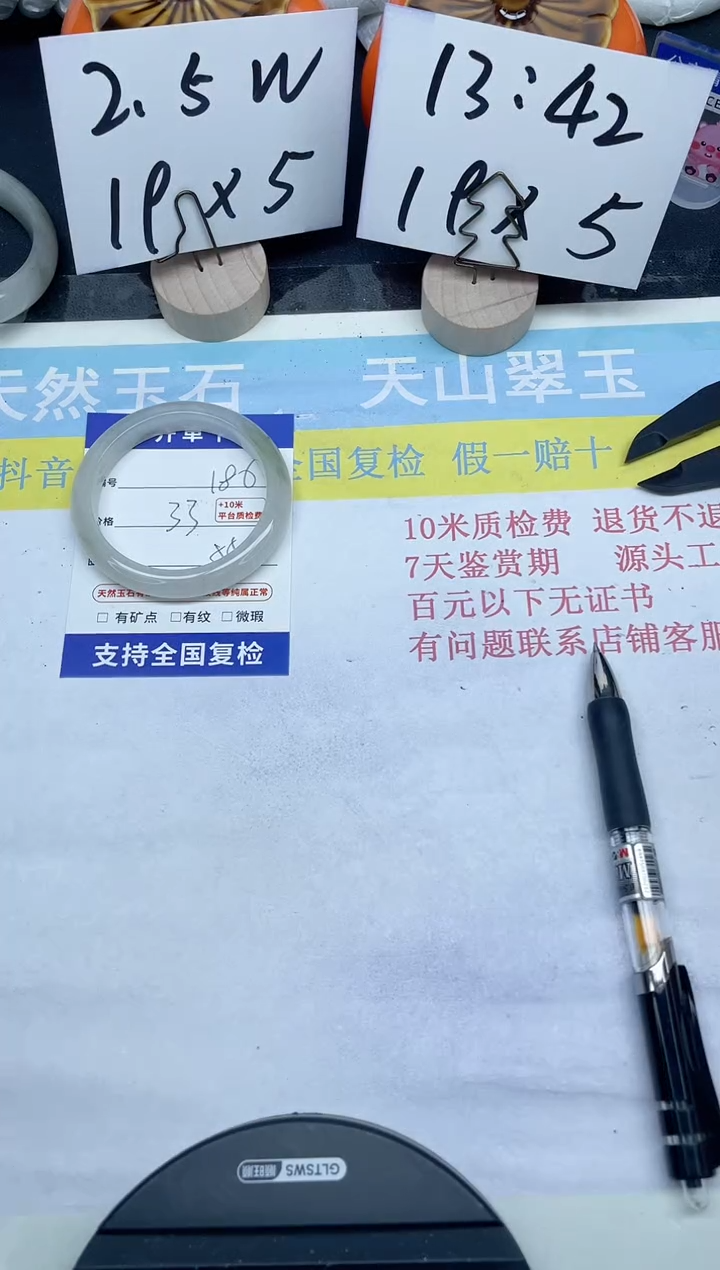 2.5W
19×5
13:42
19×5
天然玉石
天山翠玉
抖音
全国复检 假一赔十
186
33
+10米
平台质检费
天然玉石
等纯属正常
□ 有矿点 □有纹 □微瑕
支持全国复检
10米质检费 退货不退
7天鉴赏期 源头工
百元以下无证书
有问题联系店铺客服
GLTSWS